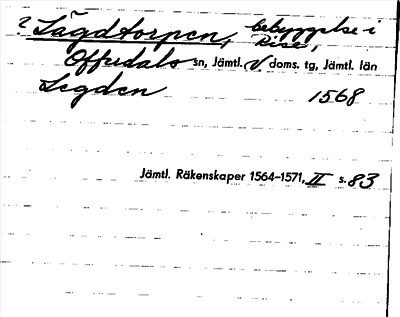 ? Lägdtorpen, bebyggelse i Rise,
Offerdals sn, Jämtl. V. doms. tg, Jämtl. län
Legden 1568
Jämtl. Räkenskaper 1564–1571, II s. 83